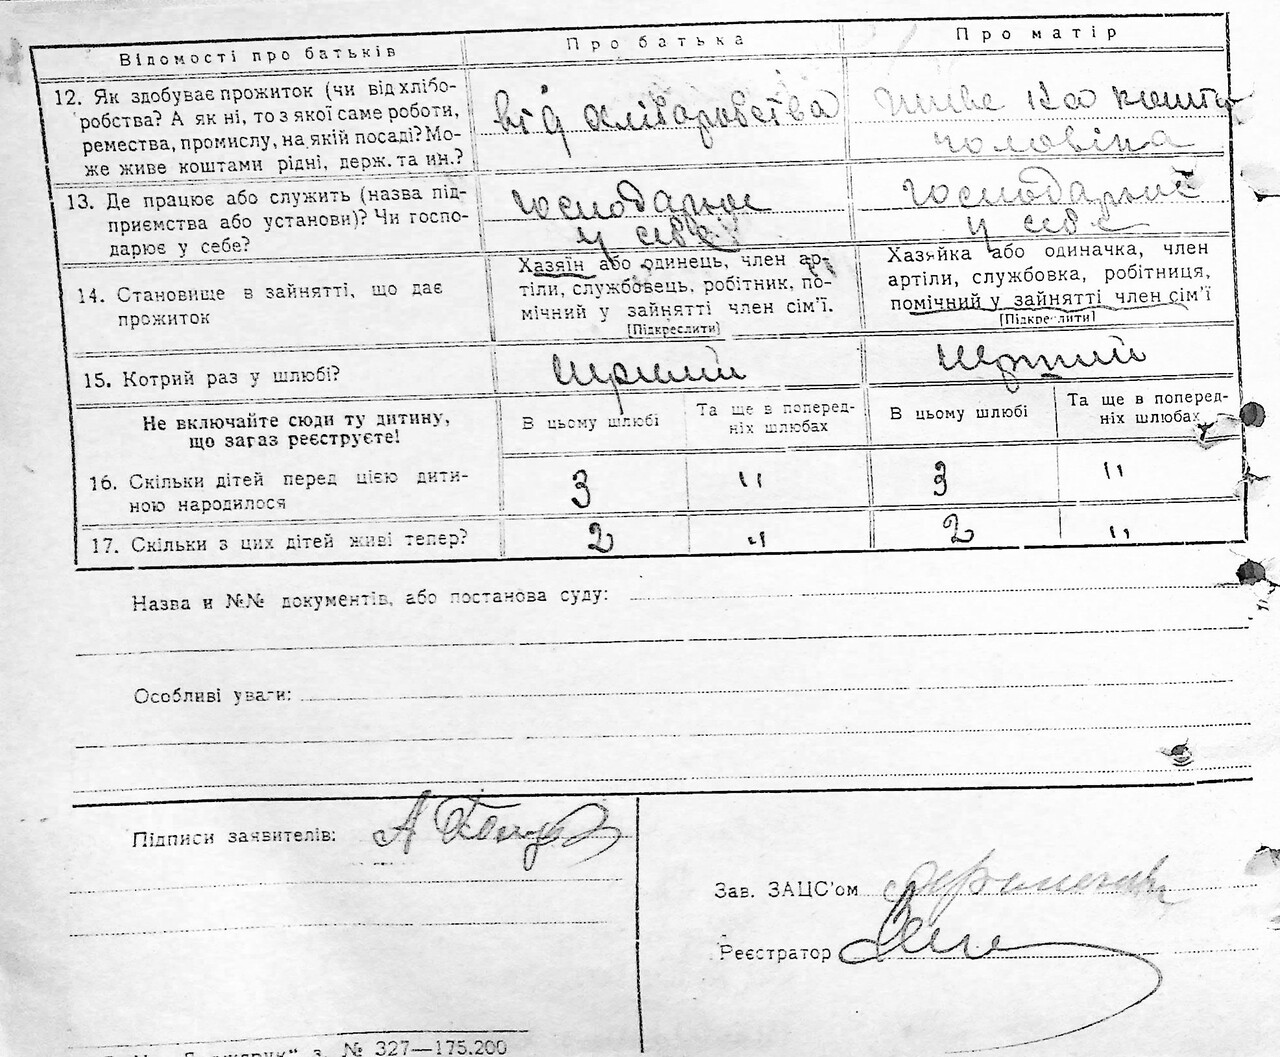 Відомості про батьків
Про батька
Про матір
12. Як здобуває прожиток (чи від хлібо-
робства? А як ні, то з якої саме роботи,
ремества, промислу, на якій посаді? Мо-
же живе коштами рідні, держ. та ин.?
від хліборобства
живе на кошти
чоловіка
13. Де працює або служить (назва під-
приємства або установи)? Чи госпо-
дарює у себе?
господарює
у себе
господарює
у себе
14. Становище в зайнятті, що дає
прожиток
Хазяїн або одинець, член ар-
тіли, службовець, робітник, по-
мічний у зайнятті член сім'ї.
[Підкреслити]
Хазяйка або одиначка, член
артіли, службовка, робітниця,
помічний у зайнятті член сім'ї
[Підкреслити]
15. Котрий раз у шлюбі?
перший
перший
Не включайте сюди ту дитину,
що загаз реєструєте!
В цьому шлюбі
Та ще в поперед-
ніх шлюбах
В цьому шлюбі
Та ще в поперед-
ніх шлюбах
16. Скільки дітей перед цією дити-
ною народилося
3
"
3
"
17. Скільки з цих дітей живі тепер?
2
"
2
"
Назва и №№ документів, або постанова суду:
Особливі уваги:
Підписи заявителів:
Зав. ЗАЦС'ом
Реєстратор
з. № 327—175.200